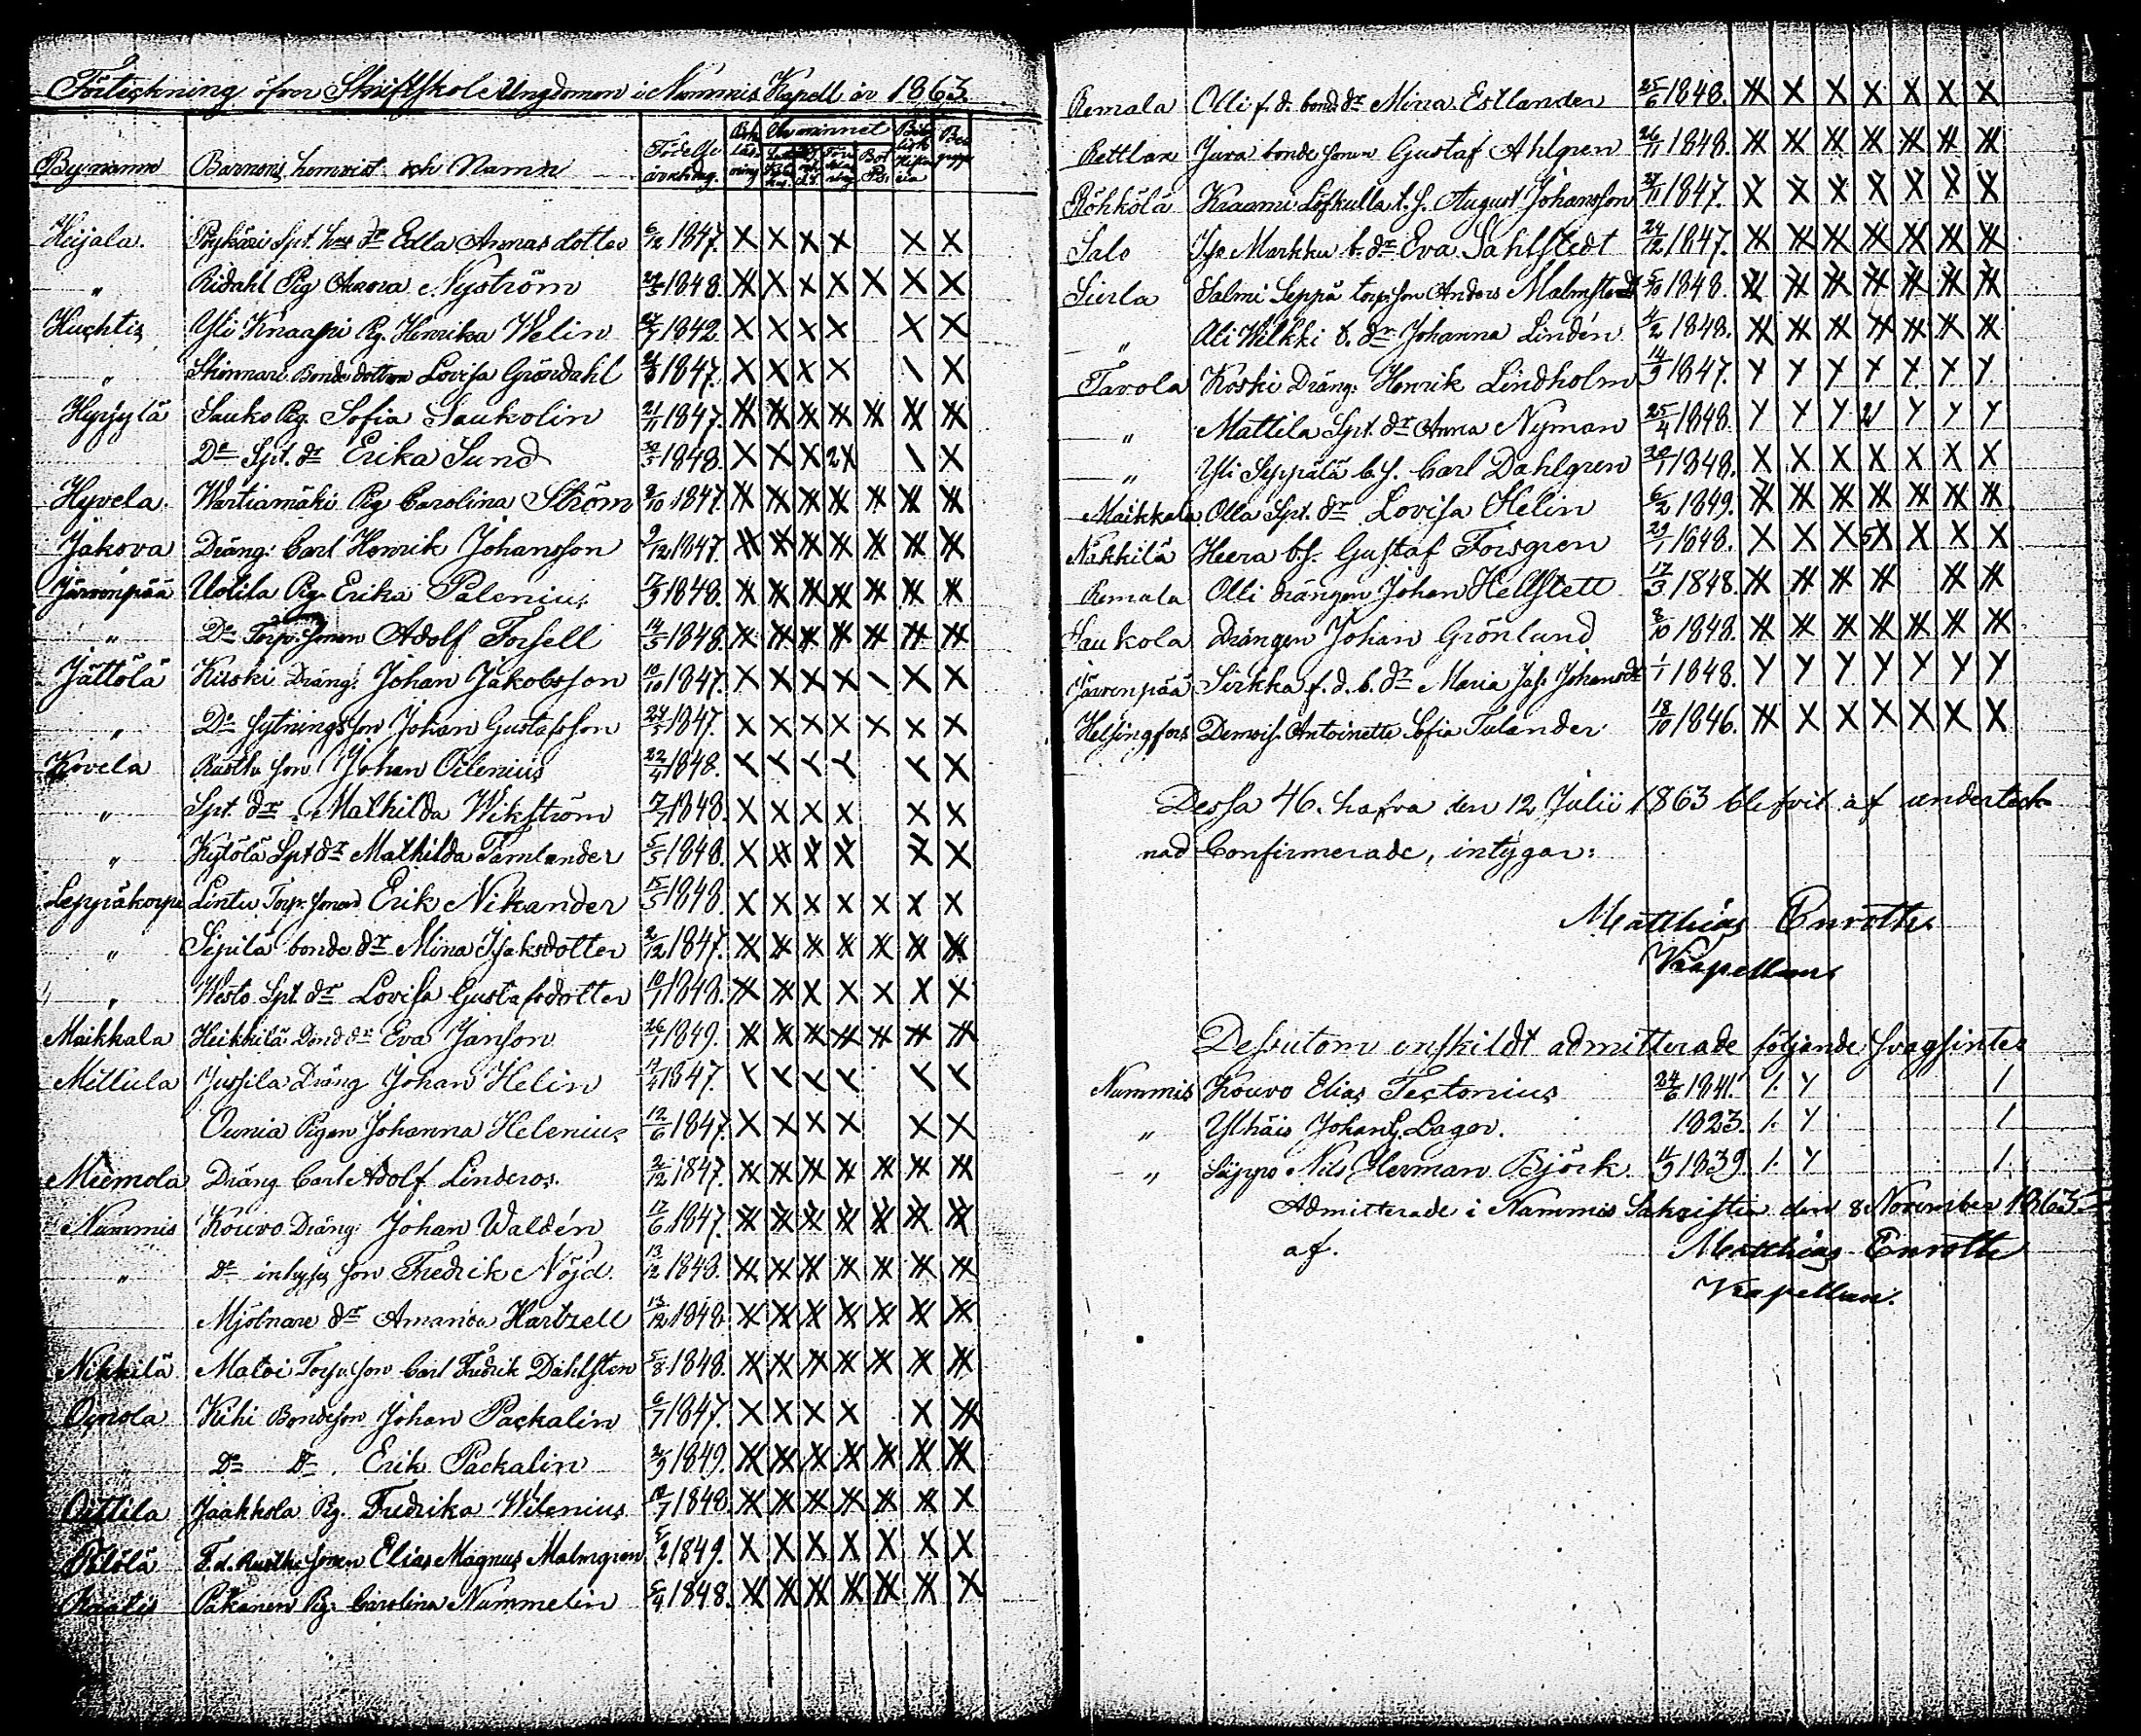 Förteckning öfver Skriftskole Ungdomen i Nummis Kapell år 1863
Bynamn Barnens hemvist och Namn Födelse år och dag. Bok läsning Ur minnet Bot Ps. Begrepp
Heijala. Spt. dr Edla Annas dotter 6/12 1847. X X X X X X
" Ridahl Pig Nyström 1848. X X X X X X X
Huhtis Yli Knaapi Pg. Henrika Welin 27/7 1842 X X X X X X
" Skinnari Bonde dottren Lovisa Gröndahl 1847. X X X X \ X
Hyrjylä Sauko Pig. Sofia Saukolin 21/11 1847.
Do Spt. dr Erika Sund 30/3 1848. X X X 2X \ X
Hyvela. Wartiamäki Pig Carolina Ström 9/10 1847.
Jakova Dräng: Carl Henrik Johansson 9/12 1847
Järvenpää Uotila Pig. Erika Palenius 17/3 1848.
" Do Torp. sonen Adolf Forsell 14/3 1848.
Jättölä Kuski Dräng: Johan Jakobsson 10/10 1847. X X X X \ X X
" Do sytnings son Johan Gustafsson 1847. X X X X X X X
Kovela Rusth. son Johan Oilenius 22/4 1848.
" Spt. dr Mathilda Wikström 1848. X X X X X X
" Kytölä Spt dr Mathilda Tamlander 5/5 1848.
Leppäkorpi Lintu Torp. sonen Erik Nikander 15/5 1848 X X X X X X X
" Sipilä bonde dr Mina Isaksdotter 2/12 1847.
" Westo Spt dr Lovisa Gustafsdotter 1848.
Maikkala Heikkilä Bond dr Eva Janson 1849.
Millula Jussila Dräng Johan Helin 1847.
Ounia Pigan Johanna Helenius 12/6 1847. X X X X X X
Miemola Dräng Carl Adolf Linderos. 2/12 1847.
Nummis Kouvo Dräng: Johan Waldén 17/6 1847.
" Do inhyses son Fredrik Nöjd. 13/12 1848.
Mjölnare dr Amanda Hartzell 13/12 1848
Nikkilä Matoi Torp. son Carl Fredrik Dahlsten 5/8 1848.
Oinola Kihi Bondeson Johan Packalin 6/7 1847.
" Do Do. Erik Packalin 1849.
Oittila Jaakkola Pg. Fredrika Wilenius 1848.
Pälölä F.d. Rusth. sonen Elias Magnus Malmgren 5/2 1849. X X X X X X X
Pakanen Pig. Carolina Nummelin 5/4 1848.
Remala Olli f.d. bond. dr Mina Estlander 25/6 1848.
Rettlax Juva bonde sonen Gustaf Ahlgren 26/11 1848.
Röhkölä Kraami Löfkulla t.s. August Johansson 1847. X X X X X X X
Salo Iso Markku b. dr Eva Sahlstedt 24/12 1847.
Sierla Salmi Seppä torp. son Anders Malmstedt 5/10 1848.
" Ali Wilkki b. dr Johanna Lindén 1848.
Tavola Koski Dräng. Henrik Lindholm 14/9 1847.
" Mattila Spt. dr Anna Nyman 25/4 1848.
" Yli Seppälä b.s. Carl Dahlgren 30/1 1848. X X X X X X X
Maikkala Olla Spt. dr Lovisa Helin 6/2 1849.
Näkkilä Heera b.s. Gustaf Forsgren 29/1 1848. X X X 5X X X X
Remala Olli drängen Johan Hellstett 17/3 1848.
Saukola Drängen Johan Grönlund 8/10 1848.
Järvenpää Sirkka f.d. b. dr Maria 1/1 1848.
Helsingfors Demois. Antoinette Sofia Tulander 18/10 1846.
Dessa 46. hafva den 12 Julii 1863 blifvit af underteck-
nad Confirmerade, intygar:
Matthias Enroth
Kapellan
Dessutom enskildt admitterade följande svagsinte:
Nummis Kouvo Elias Tectonius 24/6 1841. 1. Y 1
" Ylhäis Johan G. Lager. 1823. 1. Y 1
" Säppo Nils Herman Björk 1839. 1. Y 1
Admitterade i Nummis Sakristia den 8 November 1863
af. Matthias Enroth
Kapellan.